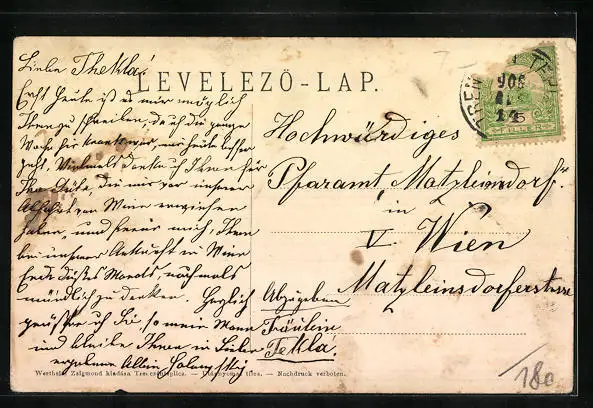 Liebe Thekla!
LEVELEZÖ-LAP.
Erst heute ist es mir möglich
Ihnen zu schreiben, da ich die ganze
Woche hier krank war, mir heute besser
geht. Vielmals dank ich Ihnen für
Ihre Güte, die mir vor unserer
Abfahrt von Wien erwiesen
haben, und freue mich, Ihnen
bei unserer Ankunft in Wien
Ende dieses Monats, nochmals
mündlich zu danken. Herzlich
grüße ich Sie, so mein Mann
und bleibe Ihnen in Liebe
ergebene
Hochwürdiges
Pfarramt Matzleinsdorf.
in
V. Wien
Matzleinsdorferstrasse
Abzugeben
Fräulein
Tekla.
908
14
5
FILLER
Wertheim Zsigmond kiadása Trencsénteplicz. — Utánnyomás tilos. — Nachdruck verboten.
180